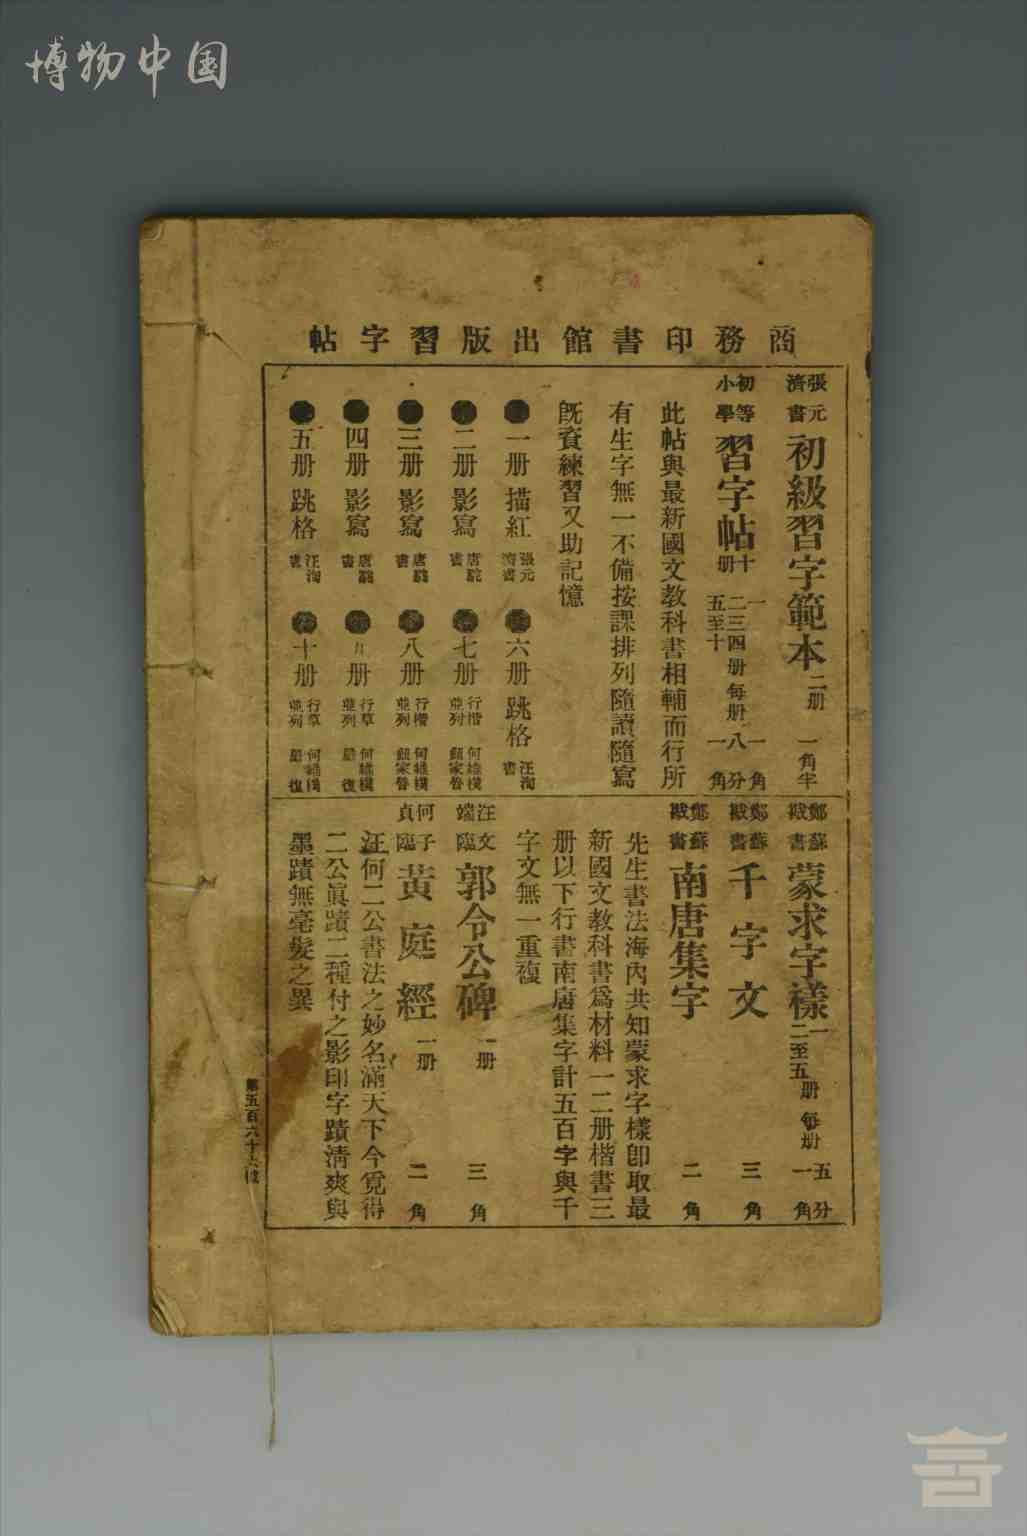 博物中国
商務印書館出版習字帖
張元濟書 初級習字範本 二册 一角半
初等小學 習字帖 十册 一 二三四 五至十 册每册 一角 八分 一角
此帖與最新國文教科書相輔而行所
有生字無一不備按課排列隨讀隨寫
既資練習又助記憶
一册 描紅 張元濟書
二册 影寫 唐駝書
三册 影寫 唐駝書
四册 影寫 唐駝書
五册 跳格 汪洵書
六册 跳格 汪洵書
七册 行楷並列 何維樸 鈕家魯
八册 行楷並列 何維樸 鈕家魯
九册 行草並列 何維樸 嚴復
十册 行草並列 何維樸 嚴復
鄭蘇戡書 蒙求字樣 一 二至五 册每册 五分 一角
鄭蘇戡書 千字文 三角
鄭蘇戡書 南唐集字 二角
先生書法海內共知蒙求字樣卽取最
新國文教科書爲材料一二册楷書三
册以下行書南唐集字計五百字與千
字文無一重複
汪文端臨 郭令公碑 一册 三角
何子貞臨 黃庭經 一册 二角
汪何二公書法之妙名滿天下今覓得
二公眞蹟二種付之影印字蹟淸爽與
墨蹟無毫髮之異
第五百六十六號